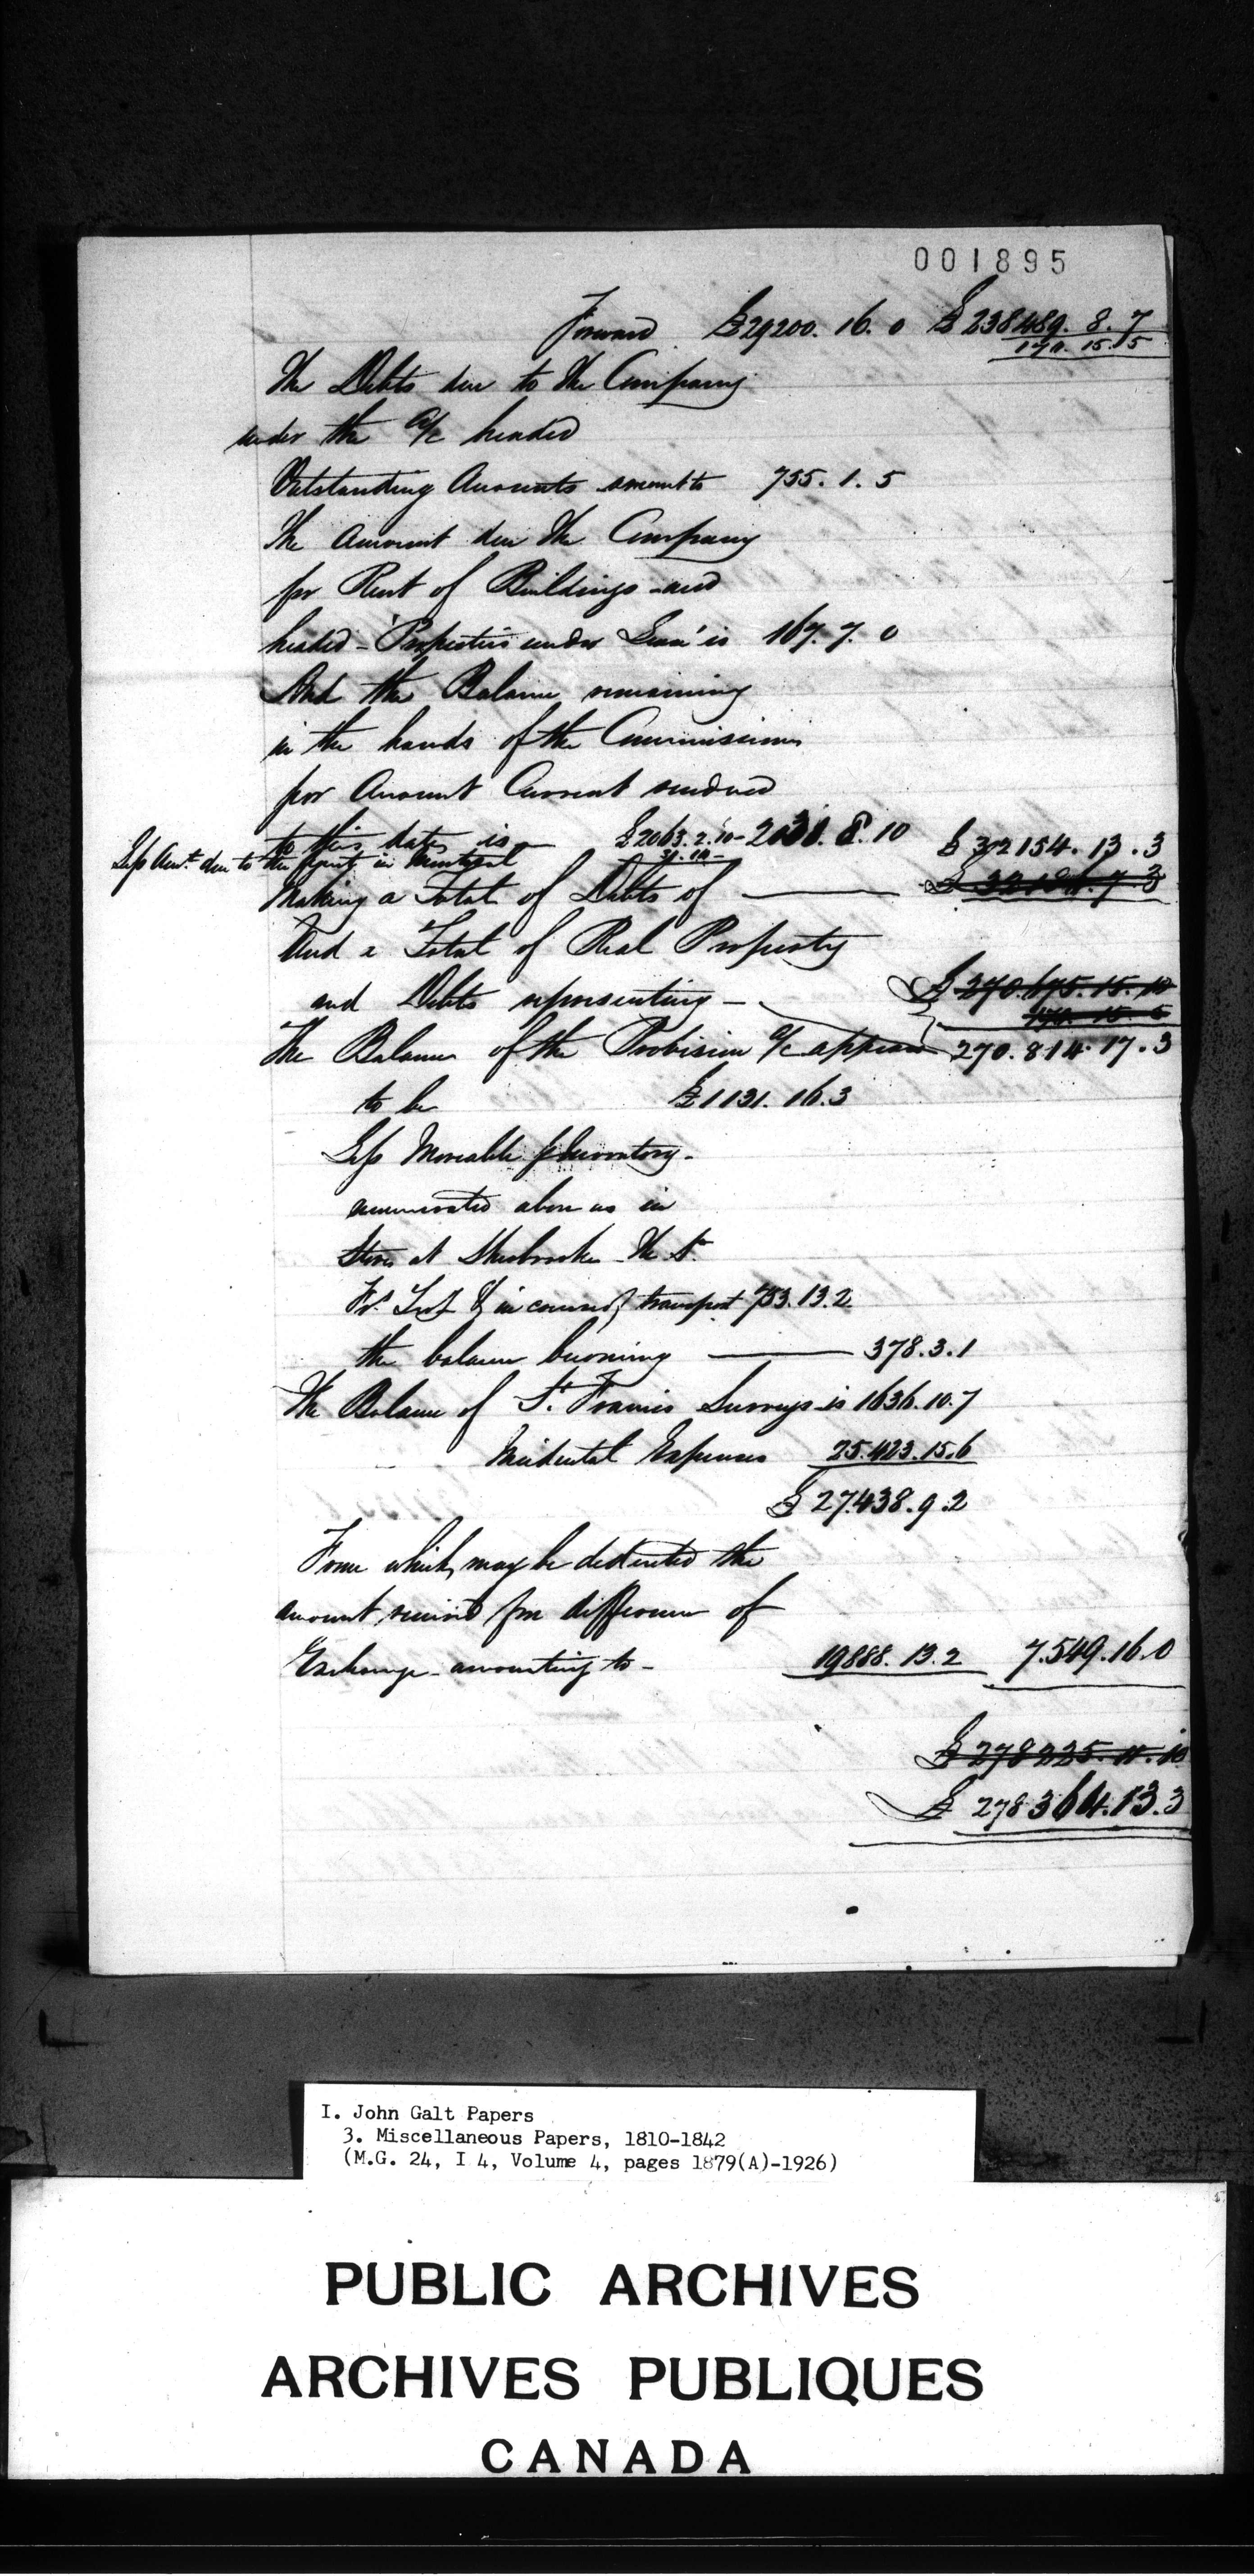 001895
Forward £29200. 16. 0 £238489. 8. 7
170. 15. 5
The Debts due to the Company
under the a/c headed
Outstanding Accounts amount to 755. 1. 5
The Amount due the Company
for Rent of Buildings and
headed - 'Properties under Lease' is 167. 7. 0
And the Balance remaining
in the hands of the Commissioners
per Account Current rendered
to this date, is £2063. 2. 10 - 2031. 8. 10
31. 14 -
Less Amt. due to the Agents in Montreal £32154. 13. 3
Making a Total of Debts of
And a Total of Real Property
and Debts representing - £270.675. 15. 10
170. 15. 5
The Balance of the Provision a/c appears 270. 814. 17. 3
to be £1131. 16. 3
Less Moveable Inventory -
enumerated above as in
Store at Sherbrooke the St.
& in course of transport 753. 13. 2
the balance becoming 378. 3. 1
The Balance of St. Francis Surveys is 1636. 10. 7
Incidental Expenses 25.423. 15. 6
£27.438. 9. 2
From which may be deducted the
amount received for difference of
Exchange - amounting to - 19888. 13. 2 7.549. 16. 0
£278225. 11. 10
£278364. 13. 3
I. John Galt Papers
3. Miscellaneous Papers, 1810-1842
(M.G. 24, I 4, Volume 4, pages 1879(A)-1926)
PUBLIC ARCHIVES
ARCHIVES PUBLIQUES
CANADA